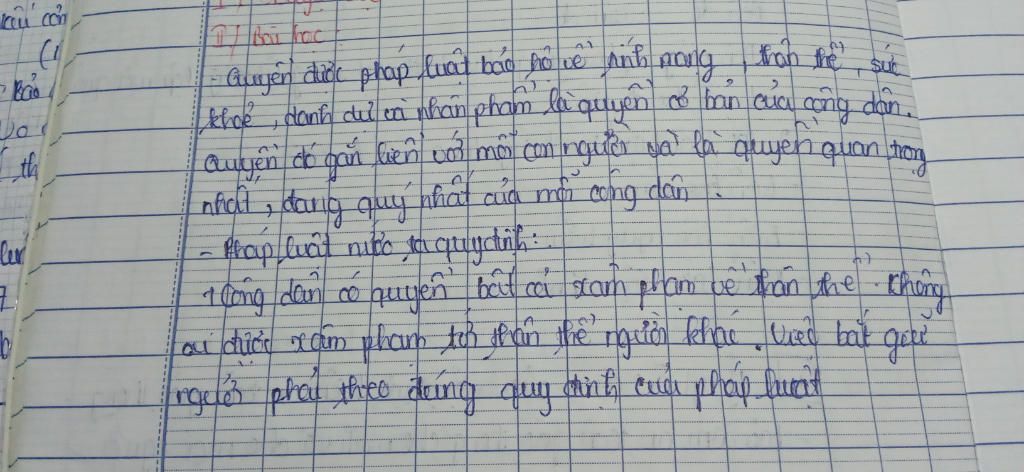 II/ Bài học
- Quyền được pháp luật bảo hộ về tính mạng, thân thể, sức
khoẻ, danh dự và nhân phẩm là quyền cơ bản của công dân.
Quyền đó gắn liền với mỗi con người và là quyền quan trọng
nhất, đang quý nhất của mỗi công dân.
- Pháp luật nước ta quy định:
+ Công dân có quyền bất cả xâm phạm về thân thể. Không
ai được xâm phạm tới thân thể người khác. Việc bắt giữ
người phải theo đúng quy định của pháp luật